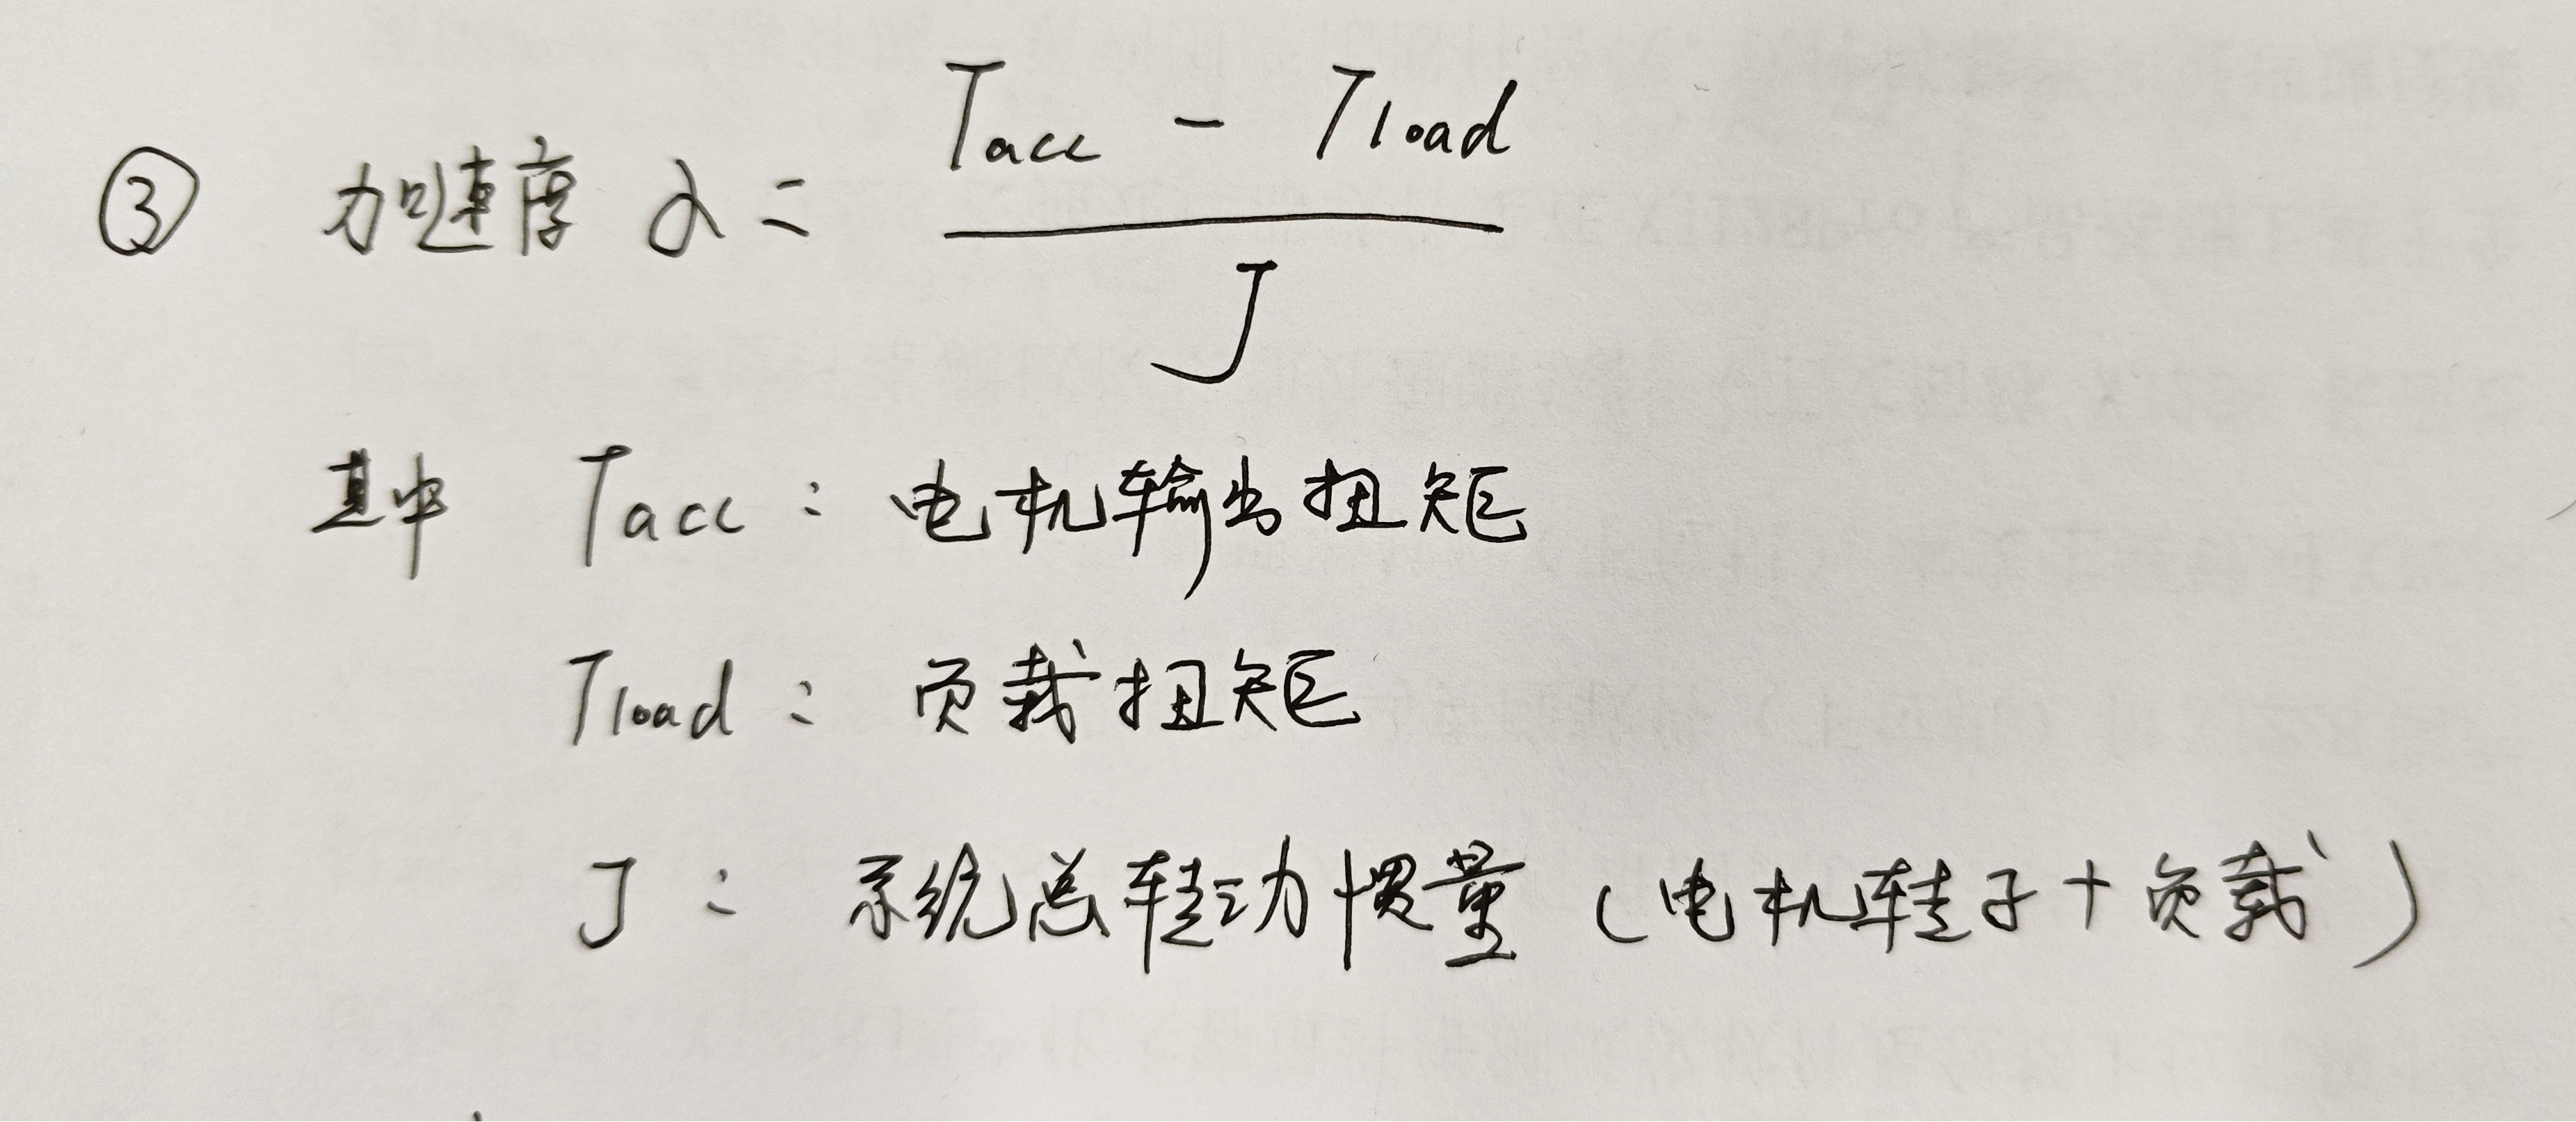 ③ 加速度 α = (Tacc - Tload) / J
其中 Tacc：电机输出扭矩
Tload：负载扭矩
J：系统总转动惯量（电机转子+负载）